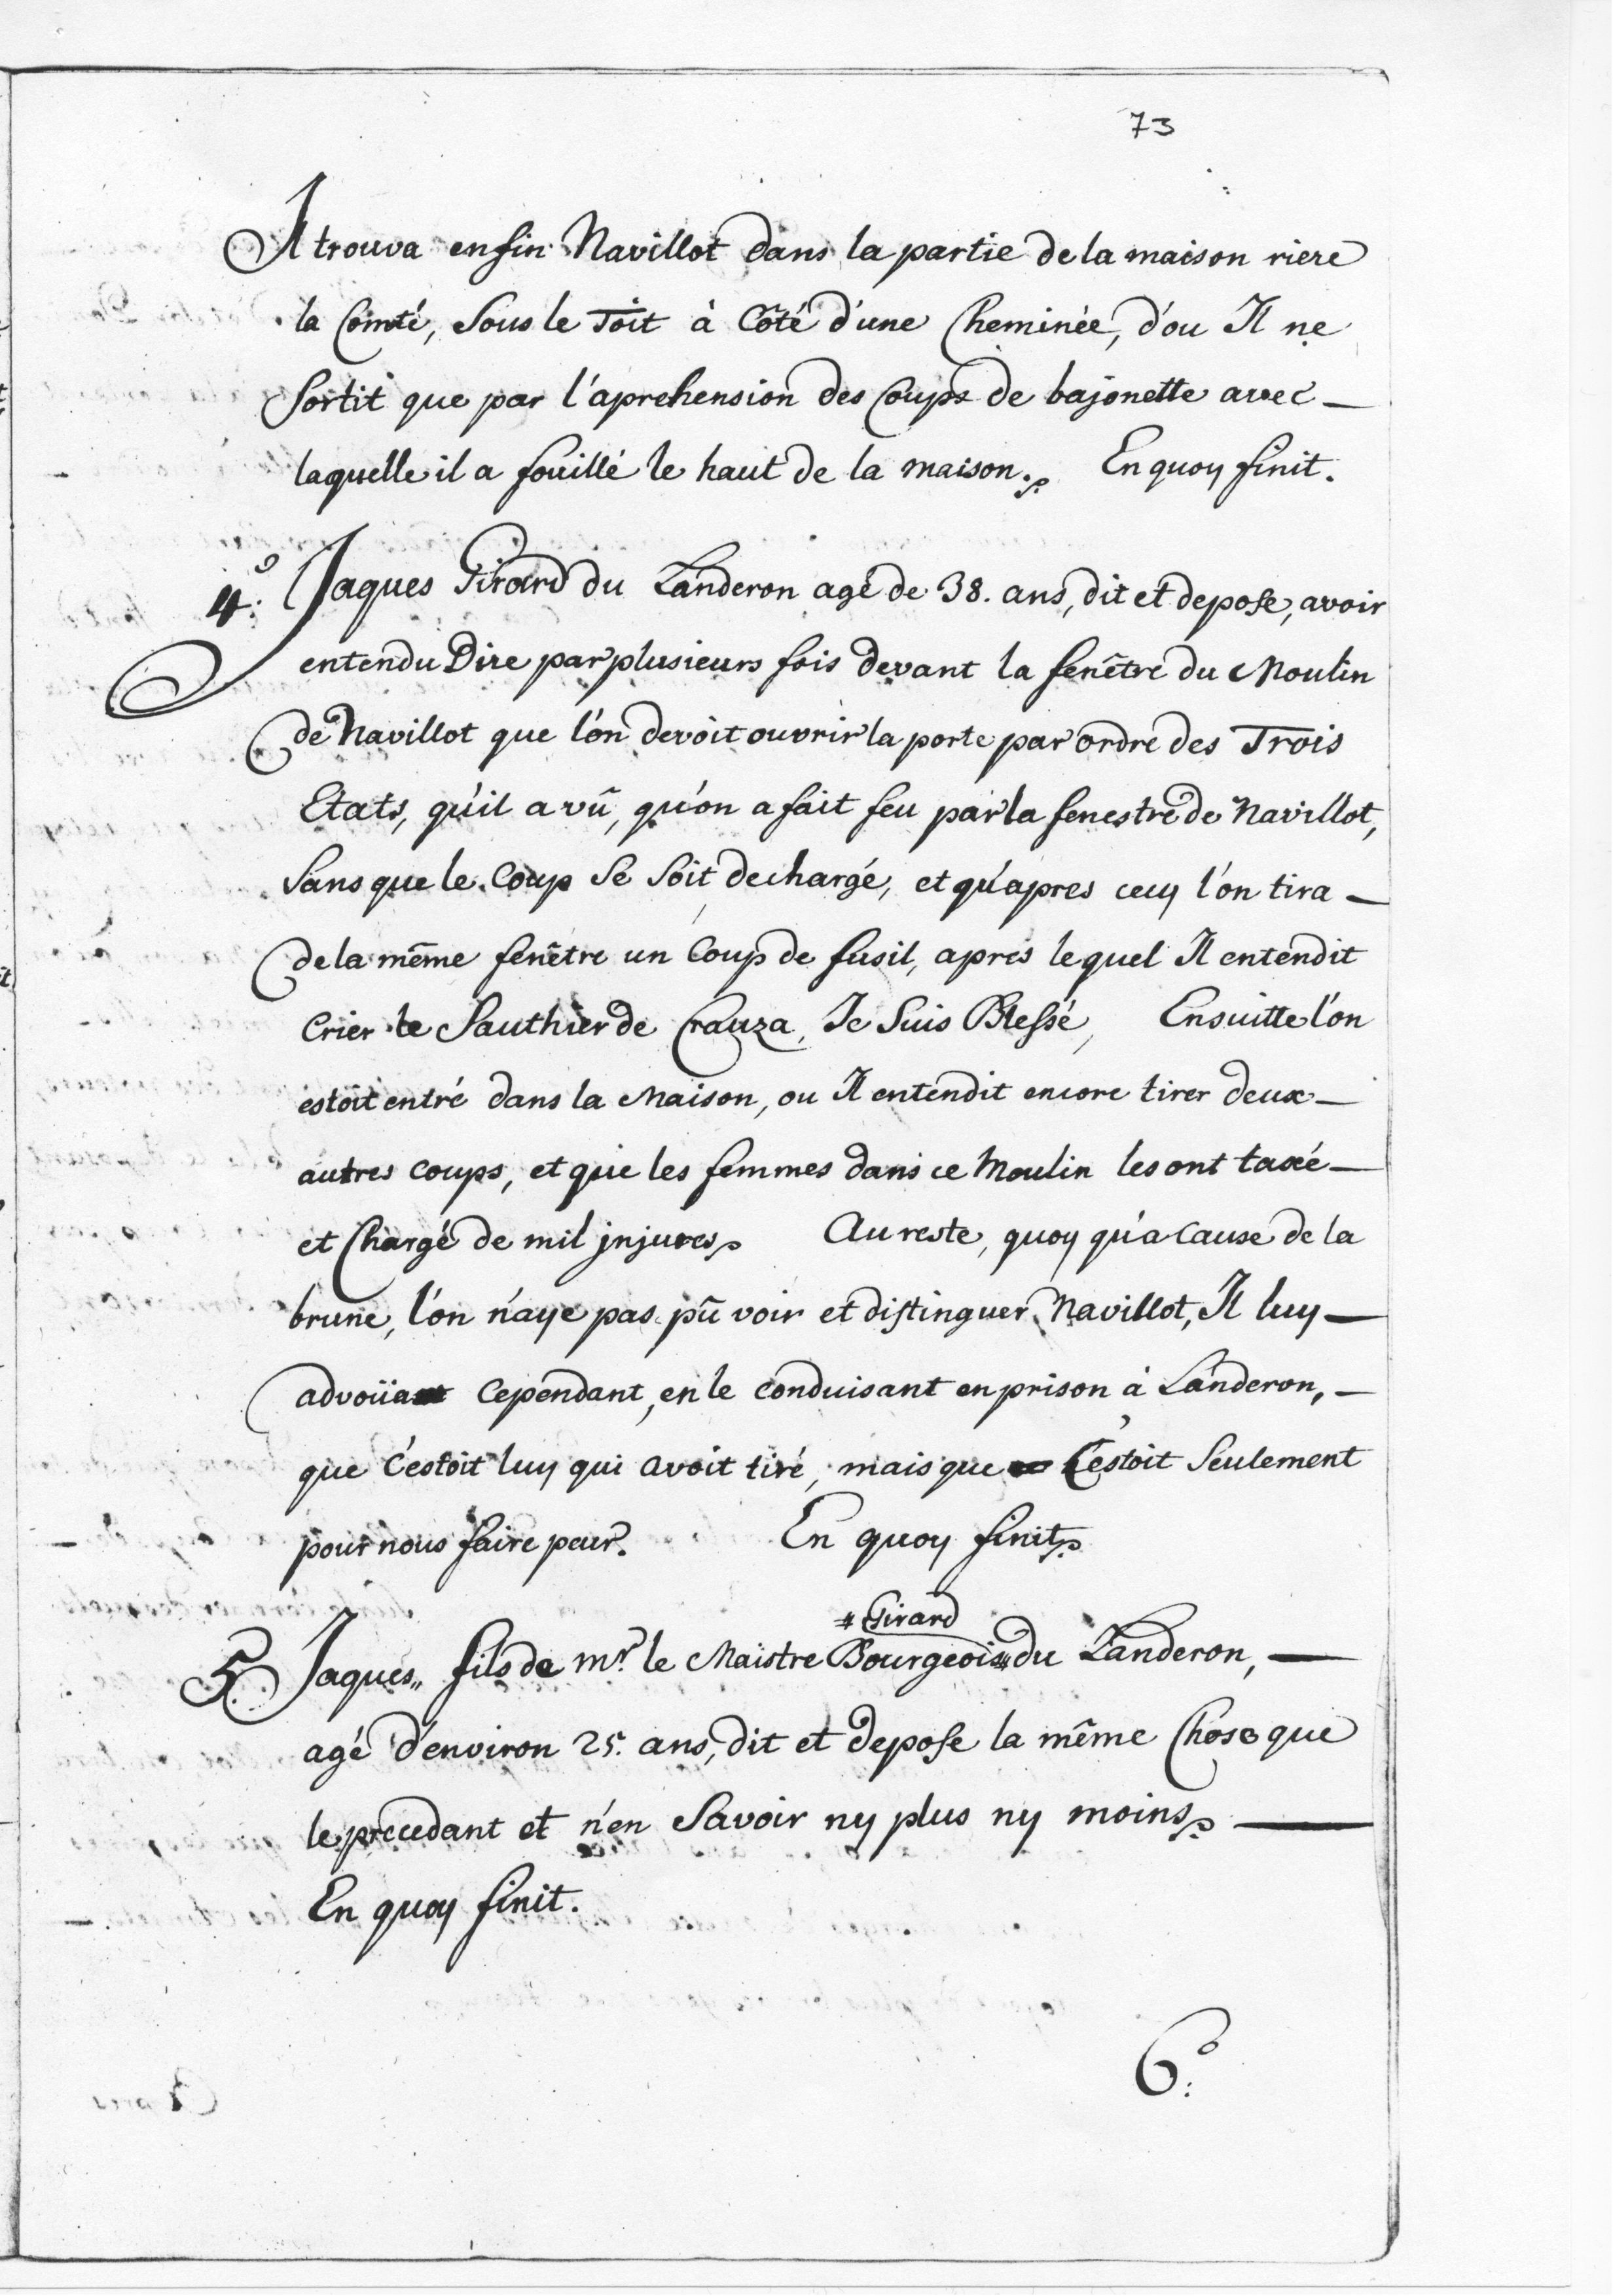 73
Il trouva enfin Navillot dans la partie de la maison riere
la Comté, Sous le Toit à Côté d'une Cheminée, d'ou Il ne
Sortit que par l'aprehension des Coups de bajonette avec
laquelle il a fouillé le haut de la maison. En quoy finit.
4.º Jaques Girard du Landeron agé de 38. ans, dit et depose, avoir
entendu Dire par plusieurs fois devant la fenêtre du Moulin
de Navillot que l'on devoit ouvrir la porte par ordre des Trois
Etats, qu'il a vû, qu'on a fait feu par la fenestre de Navillot,
Sans que le Coup Se Soit dechargé, et qu'apres cecy l'on tira
de la même fenêtre un Coup de fusil, apres lequel Il entendit
Crier le Sauthier de Crauza, Je Suis Blessé, Ensuitte l'on
estoit entré dans la Maison, ou Il entendit encore tirer deux
autres coups, et que les femmes dans ce Moulin les ont taxé
et Chargé de mil jnjures. Au reste, quoy qu'a Cause de la
brune, l'on n'aye pas pû voir et distinguer Navillot, Il luy
advoüa Cependant, en le conduisant en prison à Landeron,
que c'estoit luy qui avoit tiré, mais que C'estoit Seulement
pour nous faire peur. En quoy finit.
# Girard
5. Jaques,, fils de mr. le Maistre Bourgeois # du Landeron,
agé d'environ 25. ans, dit et depose la même Chose que
le precedant et n'en Savoir ny plus ny moins.
En quoy finit.
6.º